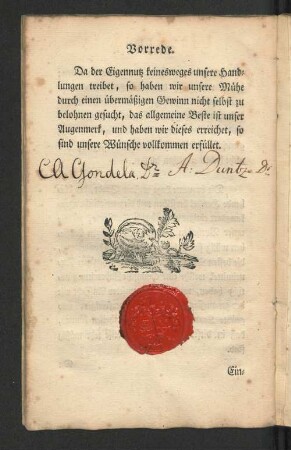 Vorrede.
Da der Eigennutz keinesweges unsere Hand-
lungen treibet, so haben wir unsere Mühe
durch einen übermäßigen Gewinn nicht selbst zu
belohnen gesucht, das allgemeine Beste ist unser
Augenmerk, und haben wir dieses erreichet, so
sind unsere Wünsche vollkommen erfüllet.
CA Gondela, Dr A: Duntze Dr
Ein-